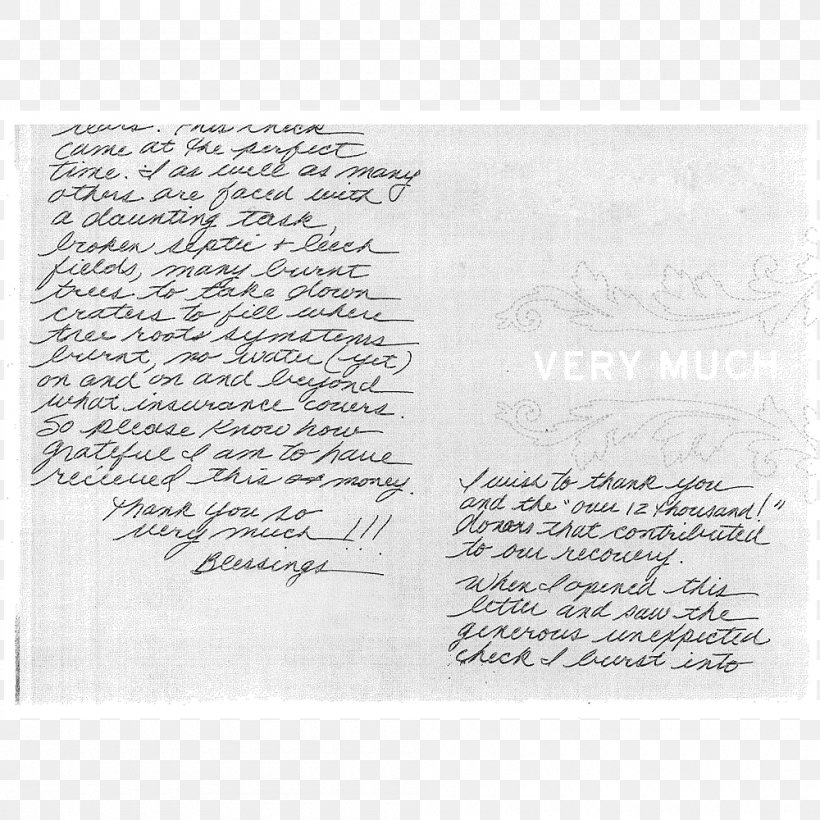 tears. This check
came at the perfect
time. I as well as many
others are faced with
a daunting task,
broken septic + leech
fields, many burnt
trees to take down
craters to fill where
tree roots symstems
burnt, no water (yet)
on and on and beyond
what insurance covers.
So please know how
grateful I am to have
recieved this money.
Thank you so
very much!!!
Blessings
VERY MUCH
I wish to thank you
and the "over 12 thousand!"
donors that contributed
to our recovery.
When I opened this
letter and saw the
generous unexpected
check I burst into